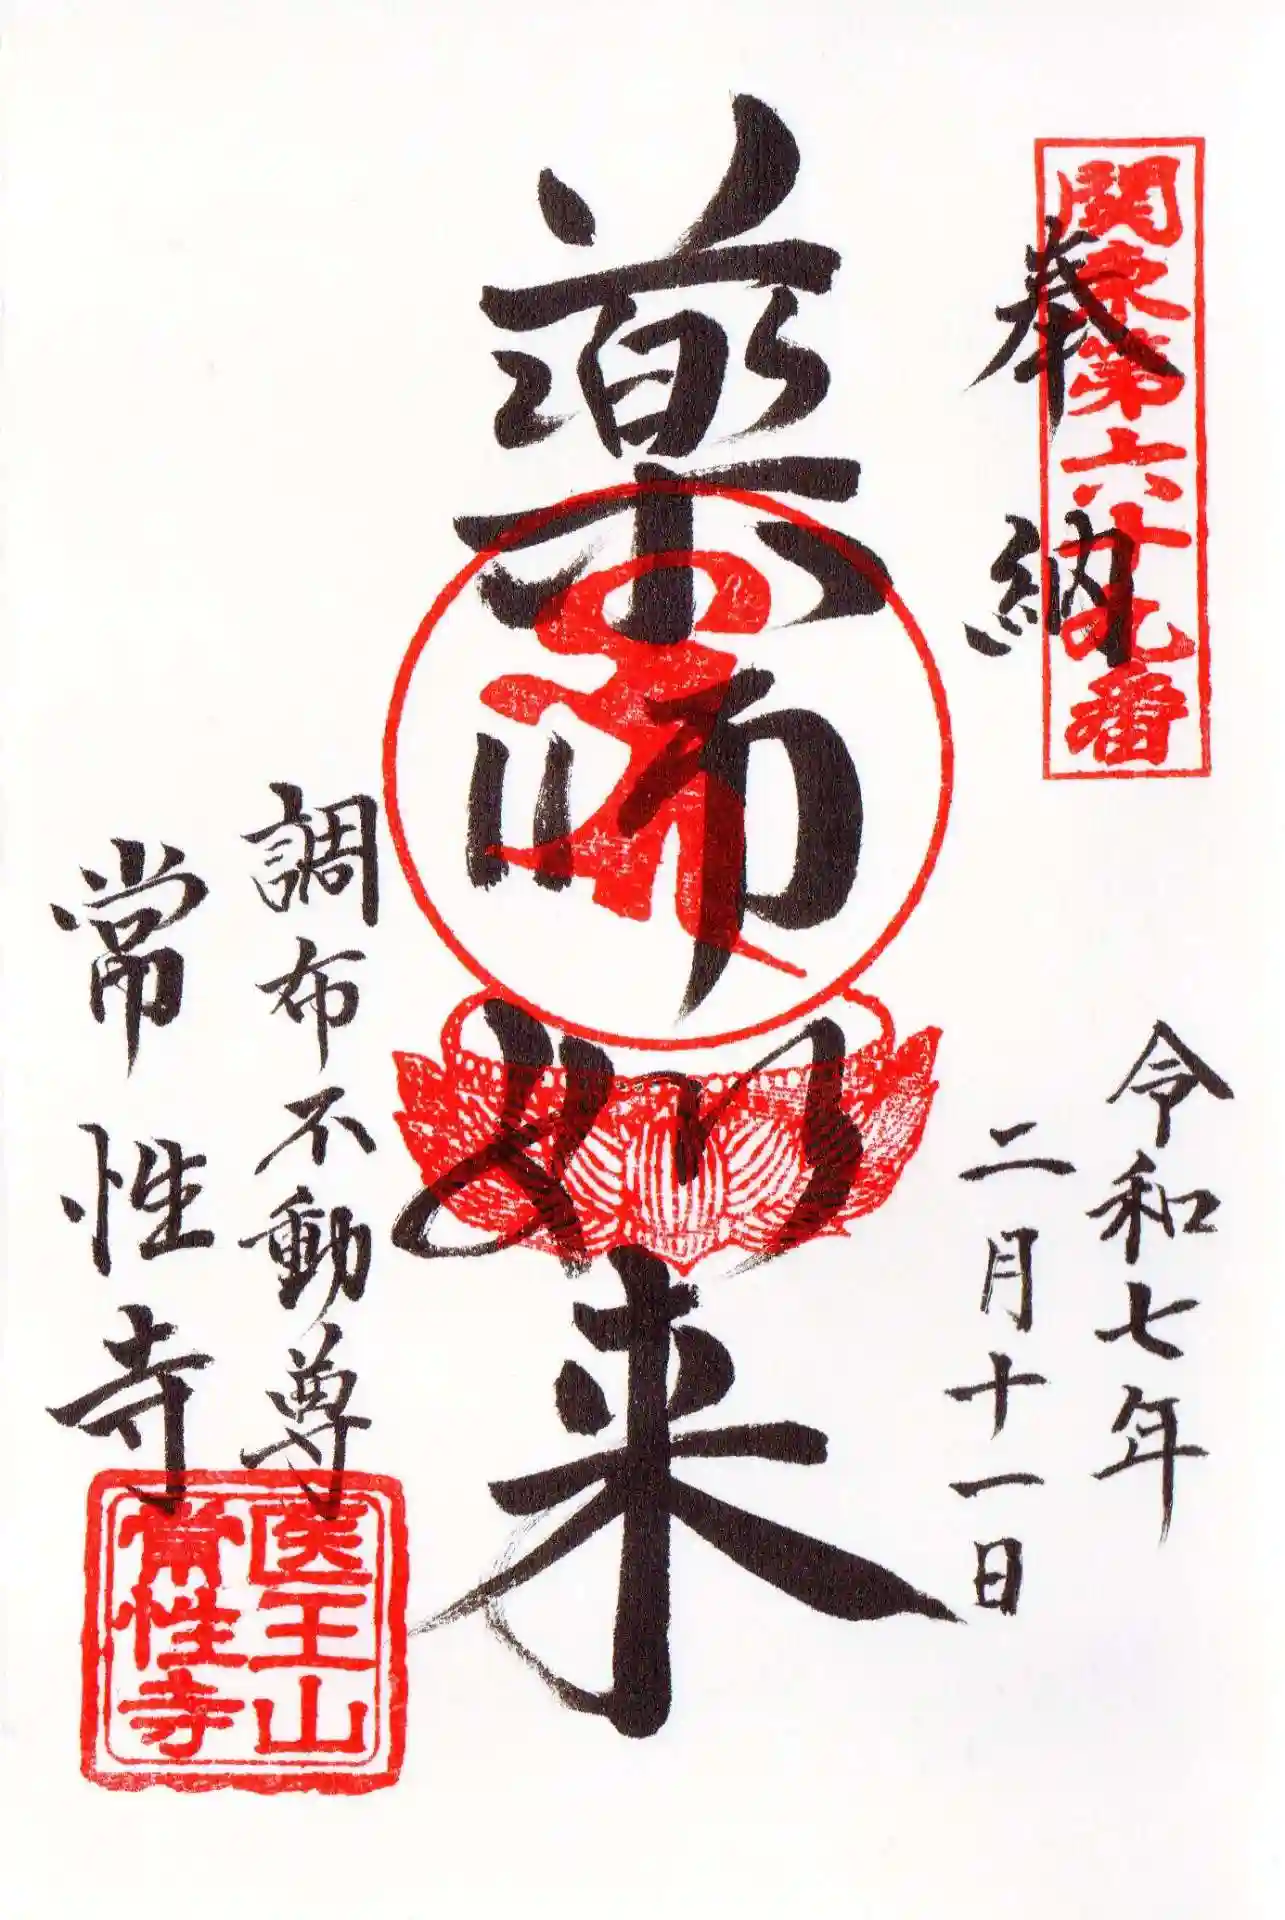 関東第六十九番
奉納
令和七年
二月十一日
薬師如来
調布不動尊
常性寺
医王山
常性寺